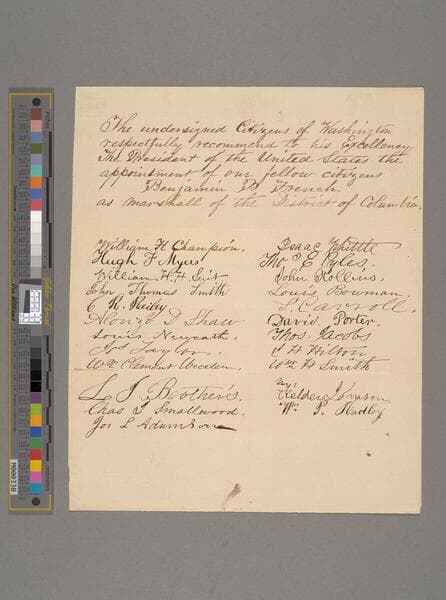 The undersigned Citizens of Washington
respectfully recommend to his Excellency
The President of the United States the
appointment of our fellow citizens
Benjamin B French
as marshall of the District of Columbia.
William H Champion.
Hugh F Myers
William. H. H.
John Thomas Smith
C R.
Alonzo D Shaw
Louis
Taylor
Wm Clement
L J Boothers.
Chas J Smallwood.
Jos L Adamson
Isaac Whittle
Tho S E Pyles.
John Hollins,
Louis Bowman
J. Carroll.
David Porter.
Thos. Jacobs
J H Hilton
Wm H Smith
Johnson
Wm P. Hadley